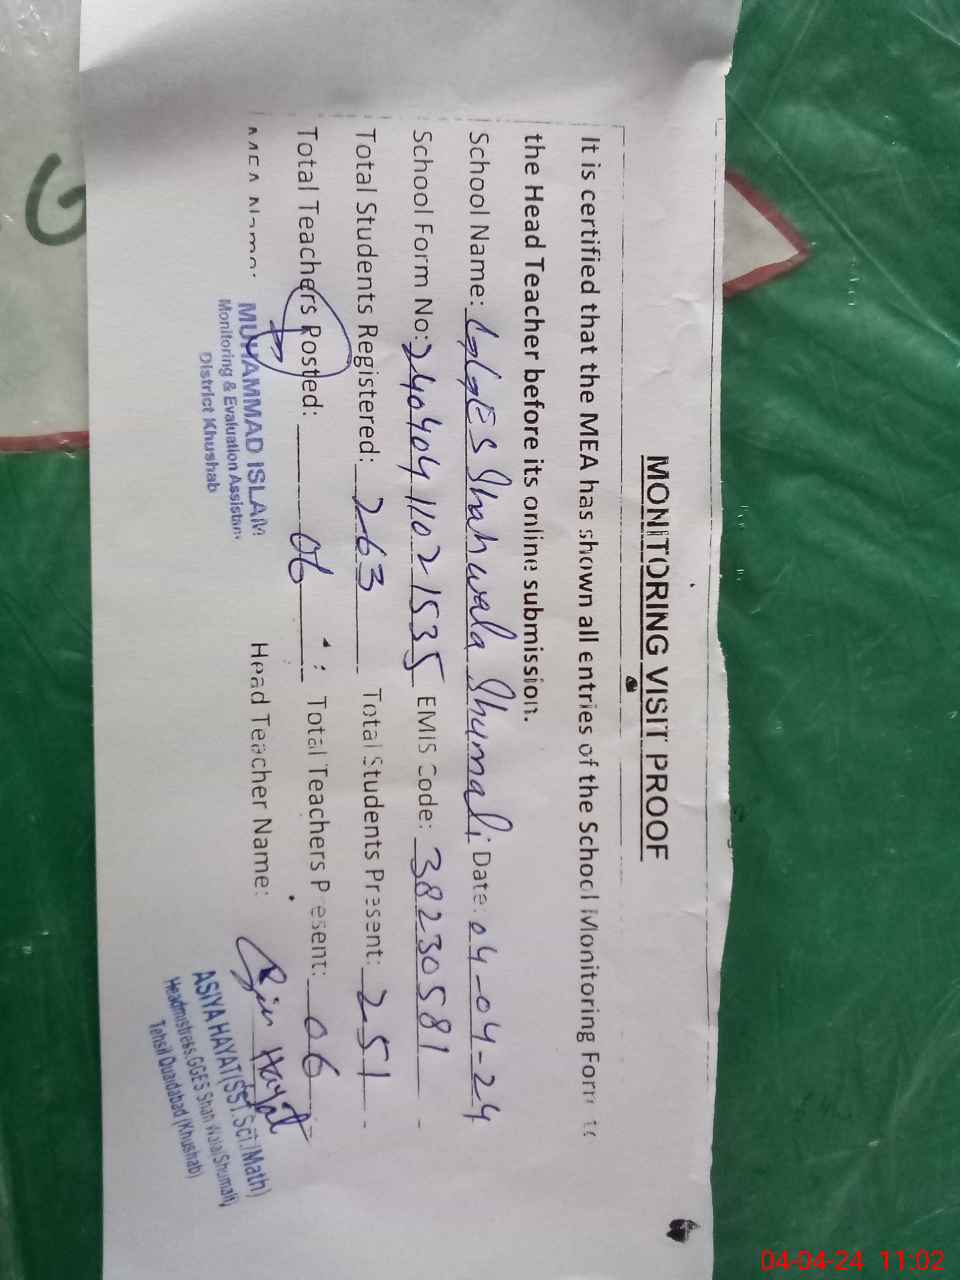 MONITORING VISIT PROOF
It is certified that the MEA has shown all entries of the School Monitoring Form to
the Head Teacher before its online submission.
School Name: GGES Shahwala Shumali Date: 04-04-24
School Form No: 24040411021535 EMIS Code: 38230581
Total Students Registered: 263 Total Students Present: 251
Total Teachers Posted: 06 Total Teachers Present: 06
MEA Name: Head Teacher Name:
MUHAMMAD ISLAM
Monitoring & Evaluation Assistant
District Khushab
Hayat
ASIYA HAYAT (SST.Sci./Math)
Headmistress.GGES Shah Wala(Shumali)
Tehsil Quaidabad (Khushab)
G
04-04-24 11:02